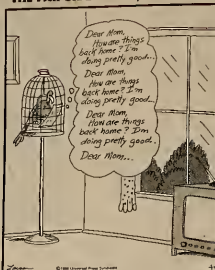 Dear Mom,
How are things
back home? I'm
doing pretty good...
Dear Mom,
How are things
back home? I'm
doing pretty good...
Dear Mom,
How are things
back home? I'm
doing pretty good.
Dear Mom...
Larson
Universal Press Syndicate